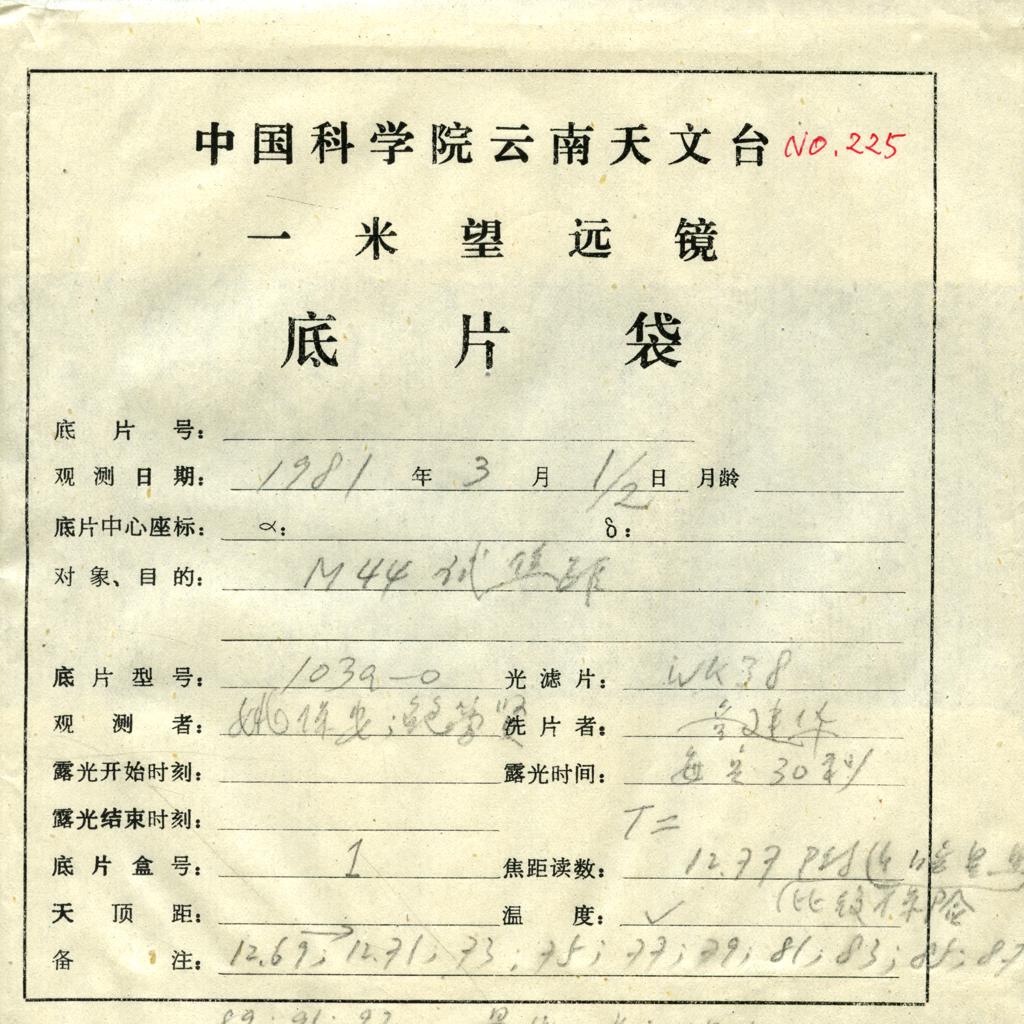 中国科学院云南天文台 NO.225
一米望远镜
底片袋
底片号：
观测日期： 1981 年 3 月 1/2 日 月龄
底片中心座标： α： δ：
对象、目的： M44 试焦距
底片型号： 103a-0 光滤片： WK38
观测者： 姚保安； 洗片者： 建华
露光开始时刻： 露光时间： 每定30秒
露光结束时刻： T=
底片盒号： 1 焦距读数： 12.77
天顶距： 温度： ✓ （比较保险
备注： 12.69; → 12.71; 73; 75; 77; 79; 81; 83; 85; 87
89; 91; 93